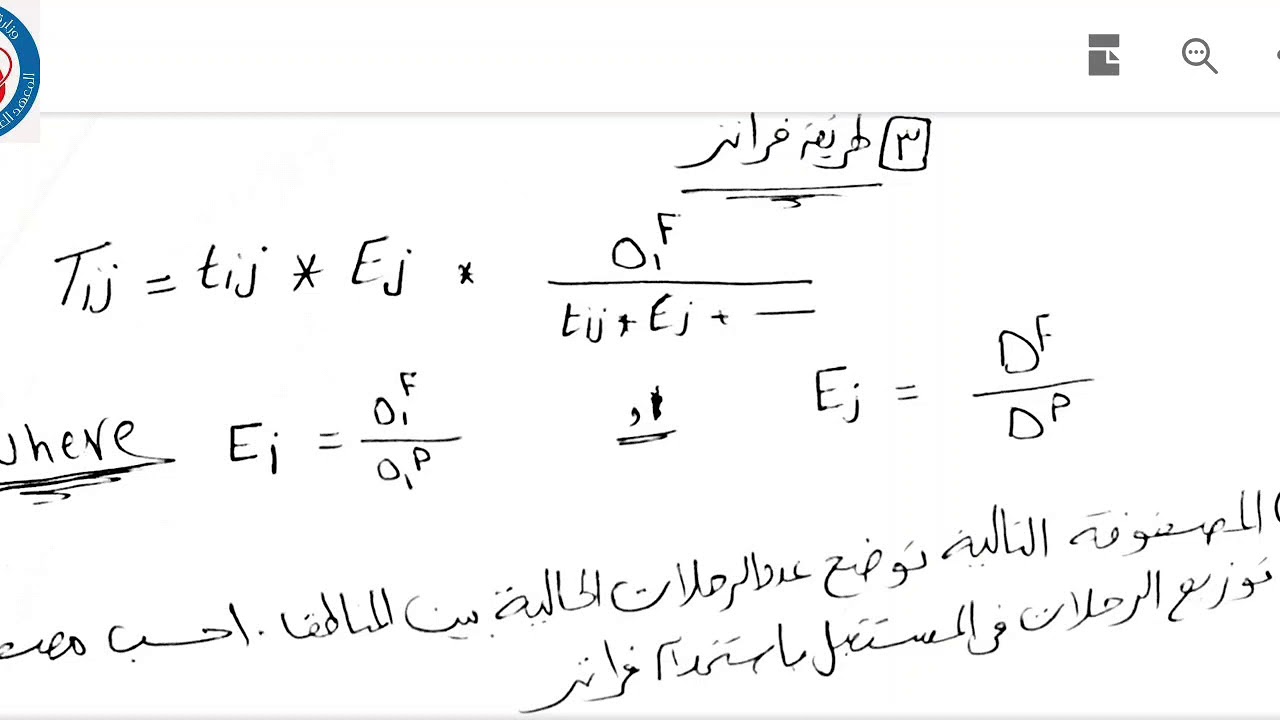 ٣ طريقة فراتر
Tij = tij * Ej * Oi^F / (tij * Ej + —)
where Ei = Oi^F / Oi^P , Ej = D^F / D^P
المصفوفة التالية توضح عدد الرحلات الحالية بين المناطق . احسب
توزيع الرحلات في المستقبل باستخدام فراتر